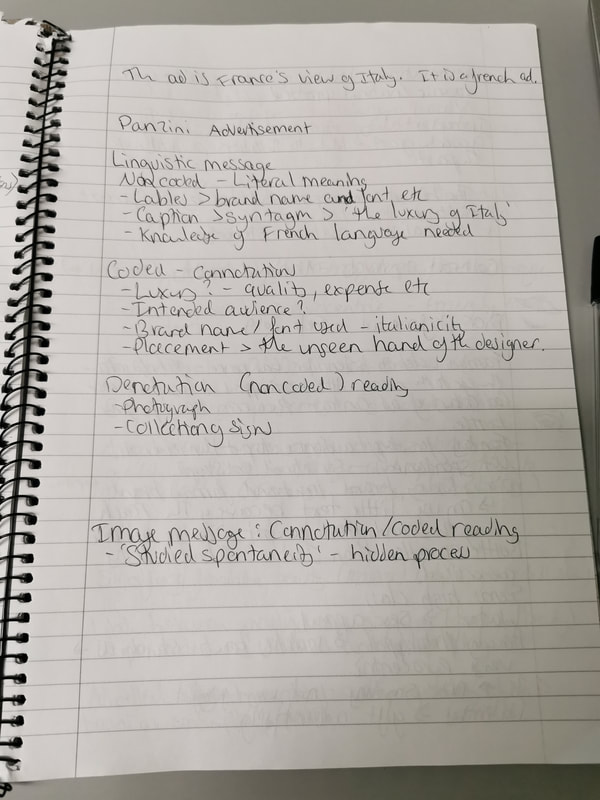 The ad is France's view of Italy. It is a french ad.
Panzini Advertisement
Linguistic message
Noncoded - Literal meaning
- Lables > brand name and font, etc
- Caption > syntagm > 'the luxury of Italy'
- Knowledge of French language needed
Coded - Connotation
- Luxury? - quality, expense etc
- Intended audience?
- Brand name / font used - italianicity
- Placement > the unseen hand of the designer.
Denotation (noncoded) reading
- Photograph
- Collection of signs
Image message : Connotation / coded reading
- 'Studied spontaneity' - hidden process